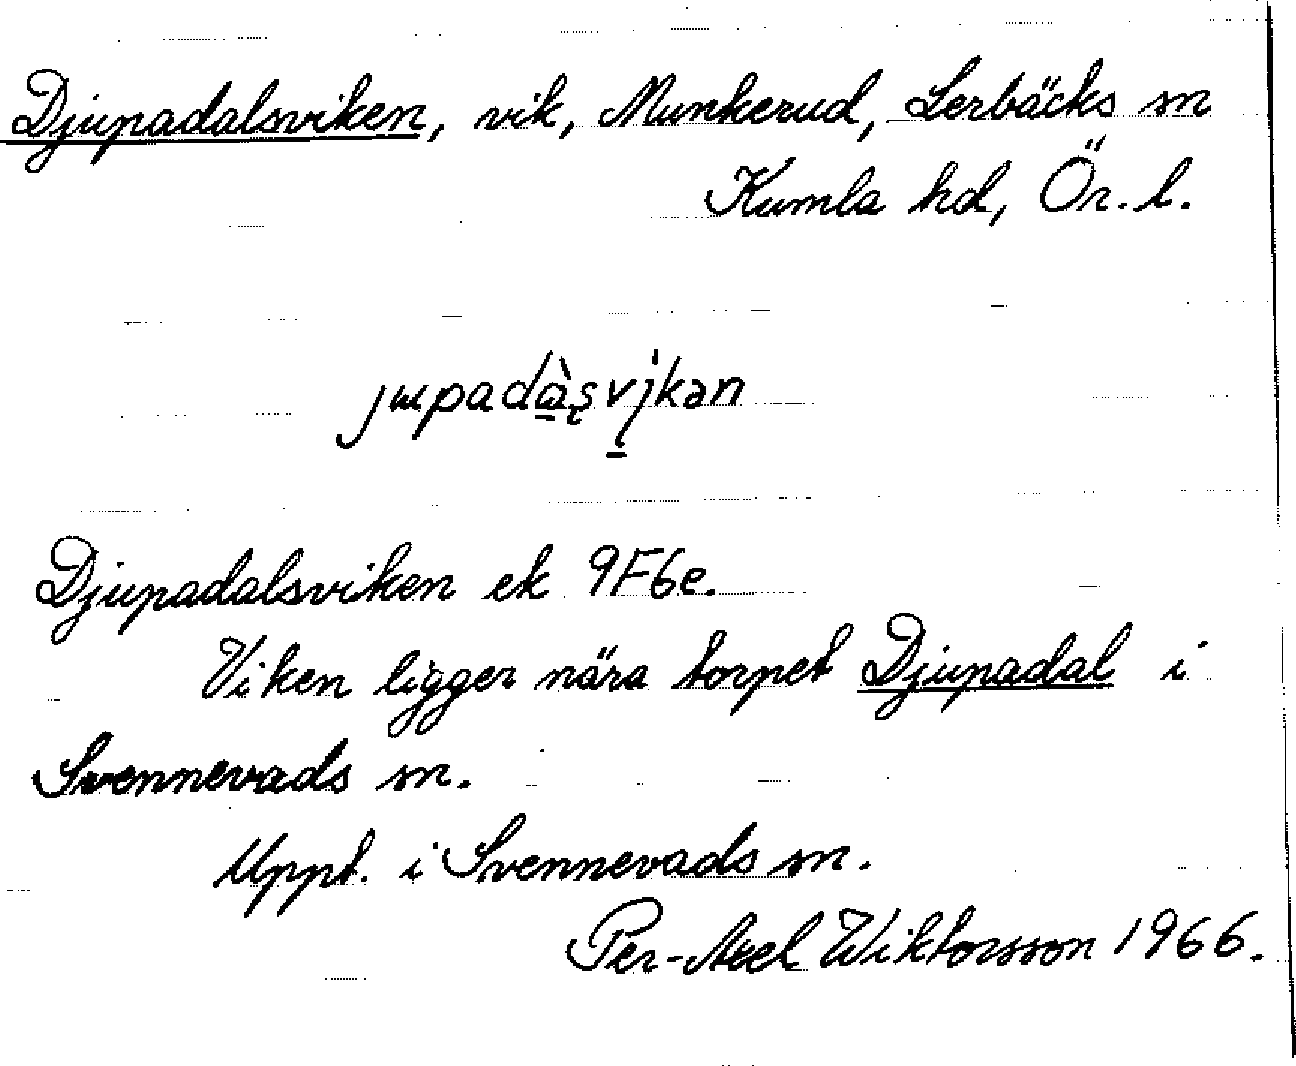 Djupadalsviken, vik, Munkerud, Lerbäcks sn
Kumla hd, Ör. l.
jupadàsvikən
Djupadalsviken ek 9F6e.
Viken ligger nära torpet Djupadal i
Svennevads sn.
Uppt. i Svennevads sn.
Per-Axel Wiktorsson 1966.